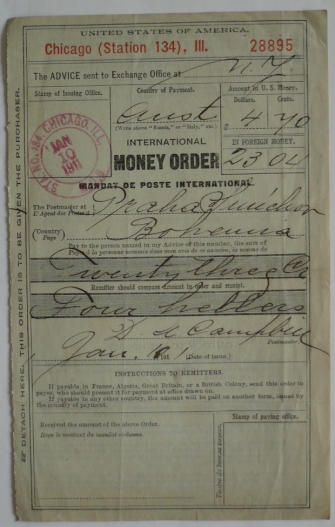 UNITED STATES OF AMERICA.
Chicago (Station 134), Ill. 28895
The ADVICE sent to Exchange Office at N.Y.
Stamp of Issuing Office.
Country of Payment.
Amount in U. S. Money.
Dollars. Cents.
Aust
$ 4 70
(Write above "Russia," or "Italy," etc.)
IN FOREIGN MONEY.
INTERNATIONAL
23 04
MONEY ORDER
MANDAT DE POSTE INTERNATIONAL.
CHICAGO, ILL.
JAN
10
1911
The Postmaster at
L'Agent des Postes à
Praha
(Country)
Pays
Bohemia
Pay to the person named in my Advice of this number, the sum of
Twenty three Cr
Remitter should compare amount in order and receipt.
Four hellers
Campbell
Postmaster.
Jan. 10 1911 (Date of issue.)
INSTRUCTIONS TO REMITTERS.
If payable in France, Algeria, Great Britain, or a British Colony, send this order to
payee, who should present it for payment at office drawn on.
If payable in any other country, the amount will be paid on another form, issued by
the country of payment.
Received the amount of the above Order.
Reçu le montant du mandat ci-dessus.
Stamp of paying office.
Timbre du bureau payeur.
DETACH HERE. THIS ORDER IS TO BE GIVEN THE PURCHASER.